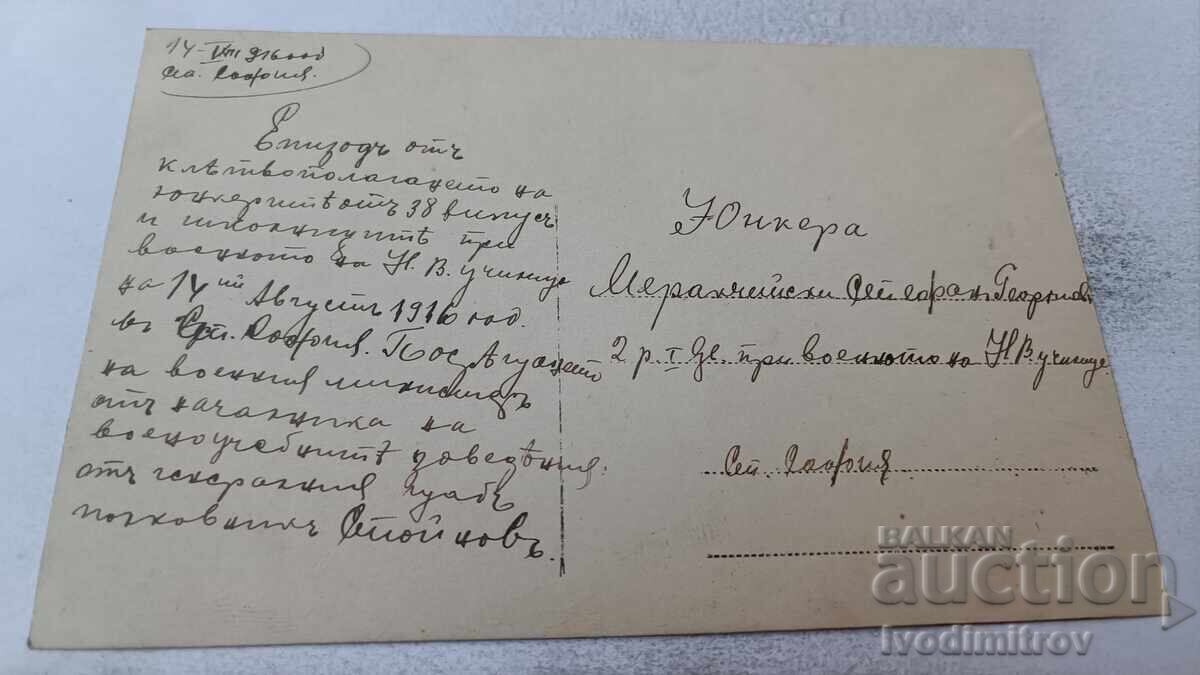 14-VIII 916 год
гр. София.
Епизодъ отъ
клѣтвополагането на
юнкеритѣ отъ 38 випускъ
и школницитѣ при
военното на Н. В. училище
на 14ий Августъ 1916 год.
въ гр. София. Посрѣщането
на военния министъръ
отъ началника на
военоучебнитѣ заведения:
отъ генералния щабъ
полковникъ Стойновъ.
Юнкера
Меракчийски Стефанъ Георгиевъ
2 р. I вз. при военното на Н. В. училище
гр. София
BALKAN
auction
ivodimitrov